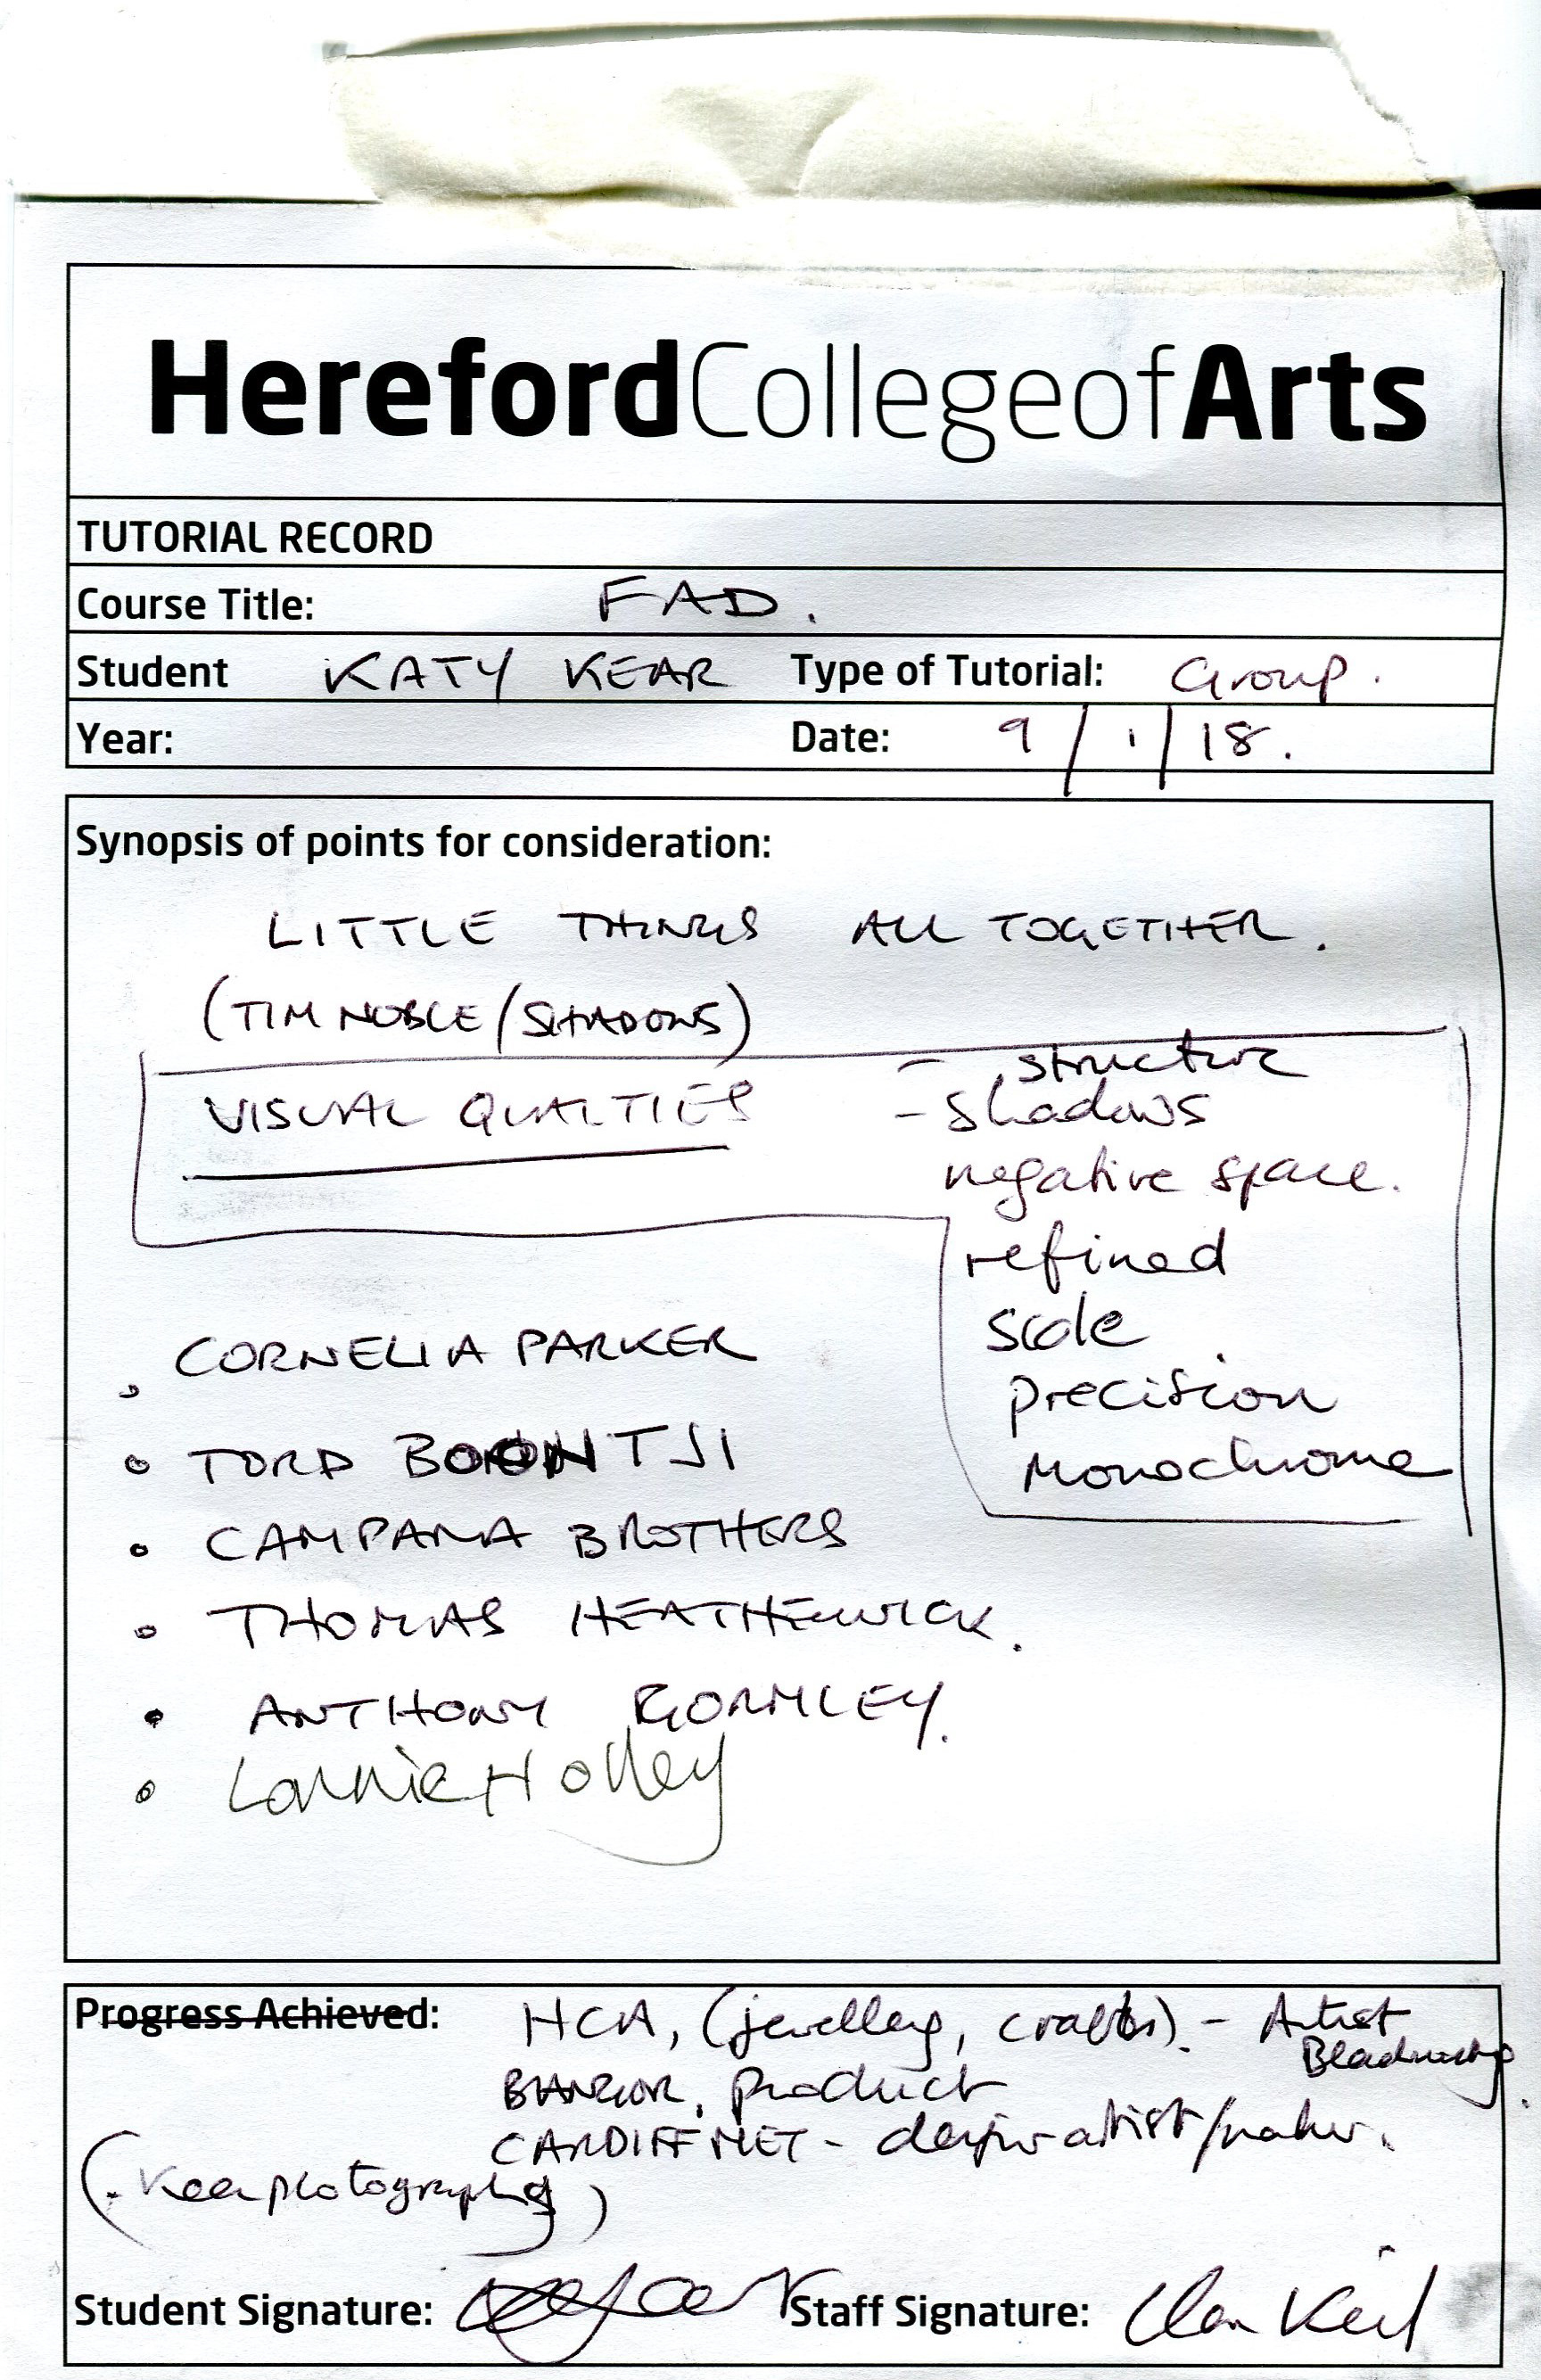 HerefordCollegeofArts
TUTORIAL RECORD
Course Title: FAD.
Student KATY KEAR Type of Tutorial: Group.
Year: Date: 9/1/18.
Synopsis of points for consideration:
LITTLE THINGS ALL TOGETHER.
(TIM NOBLE/SHADOWS)
VISUAL QUALTIES
- structure
- shadows
negative space.
refined
scale
precision
Monochrome
CORNELIA PARKER
TORD BOONTJI
CAMPANA BROTHERS
THOMAS HEATHERWICK.
ANTHONY GORMLEY.
Lonnie Holley
Progress Achieved: HCA, (jewellery, crafts). - Artist
Blacksmithing.
BANGOR, product
CARDIFF MET - designer artist/maker.
(. Keen photography)
Student Signature: Staff Signature: